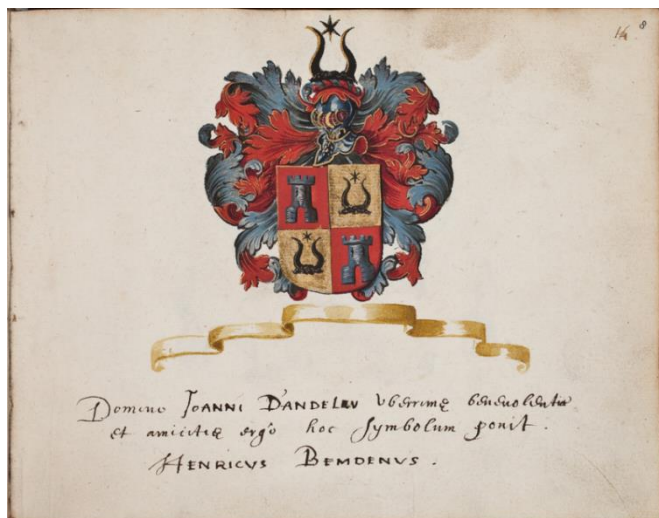 16 8
Domino JOANNI D'ANDELEU vberrimę beneuolentię
et amicitię ergo hoc Symbolum ponit.
HENRICVS BEMDENVS.